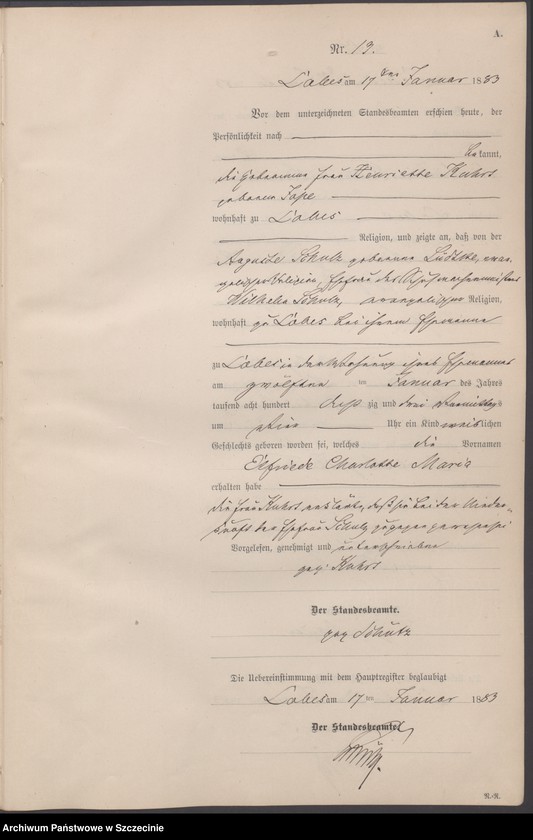 A.
Nr. 19.
Labes am 17ten Januar 1883
Vor dem unterzeichneten Standesbeamten erschien heute, der
Persönlichkeit nach
bekannt,
die Hebamme Frau Henriette Kuhrt
geborene
wohnhaft zu Labes
Religion, und zeigte an, daß von der
Auguste Schulz geborene Lüdtke, evan-
gelischer Religion, Ehefrau des Schuhmachermeisters
Wilhelm Schulz, evangelischer Religion,
wohnhaft zu Labes bei ihrem Ehemanne
zu Labes in der Wohnung ihres Ehemannes
am zwölften ten Januar des Jahres
tausend acht hundert acht zig und drei Vormittags
um Uhr ein Kind weiblichen
Geschlechts geboren worden sei, welches die Vornamen
Elfriede Charlotte Maria
erhalten habe
Die Frau Kuhrt erklärte, daß sie bei der Nieder-
kunft der Ehefrau Schulz zugegen gewesen sei
Vorgelesen, genehmigt und unterschrieben
gez. Kuhrt
Der Standesbeamte.
gez Schütz
Die Uebereinstimmung mit dem Hauptregister beglaubigt
Labes am 17 ten Januar 1883
Der Standesbeamte
Schütz.
R.-R.
Archiwum Państwowe w Szczecinie